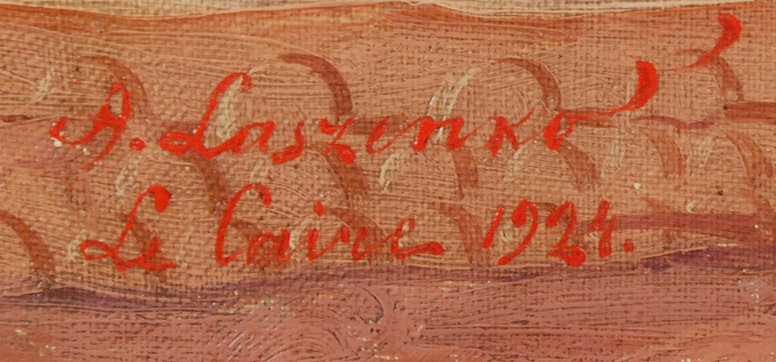 A. Laszenko
Le Caire 1924.